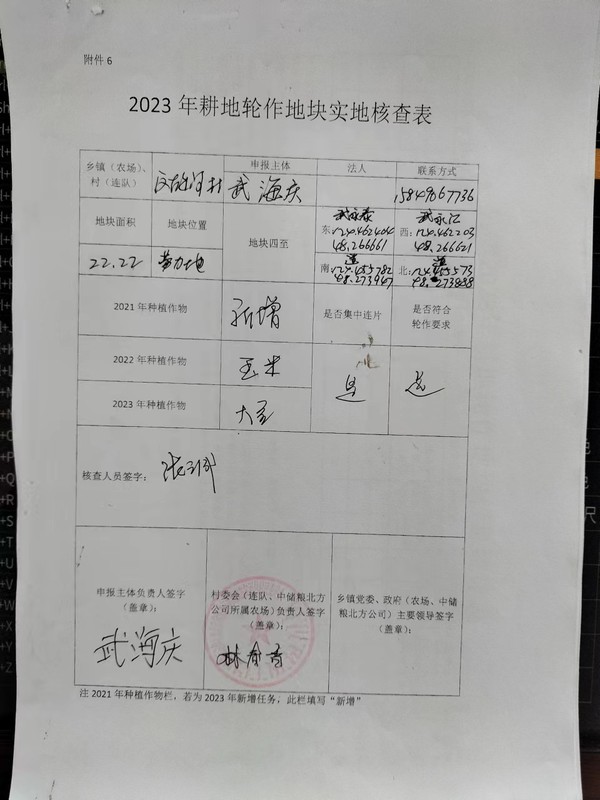 附件 6
2023 年耕地轮作地块实地核查表
乡镇（农场）、村（连队）
申报主体
法人
联系方式
武海庆
15849067736
地块面积
地块位置
地块四至
东：124.462404
48.266661
西：124.462203
48.266621
22.22
南：124.455782
48.273947
北：124.455573
48.273838
2021 年种植作物
新增
是否集中连片
是否符合轮作要求
2022 年种植作物
玉米
是
是
2023 年种植作物
大豆
核查人员签字：
申报主体负责人签字（盖章）：
武海庆
村委会（连队、中储粮北方公司所属农场）负责人签字（盖章）：
乡镇党委、政府（农场、中储粮北方公司）主要领导签字（盖章）：
注 2021 年种植作物栏，若为 2023 年新增任务，此栏填写“新增”